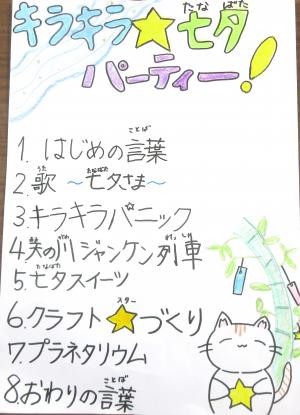 キラキラ★七夕
たなばた
パーティー！
1. はじめの言葉
ことば
2. 歌 ～七夕さま～
うた たなばた
3. キラキラパニック
4. 天の川ジャンケン列車
あま がわ れっしゃ
5. 七夕スイーツ
たなばた
6. クラフト★づくり
スター
7. プラネタリウム
8. おわりの言葉
ことば